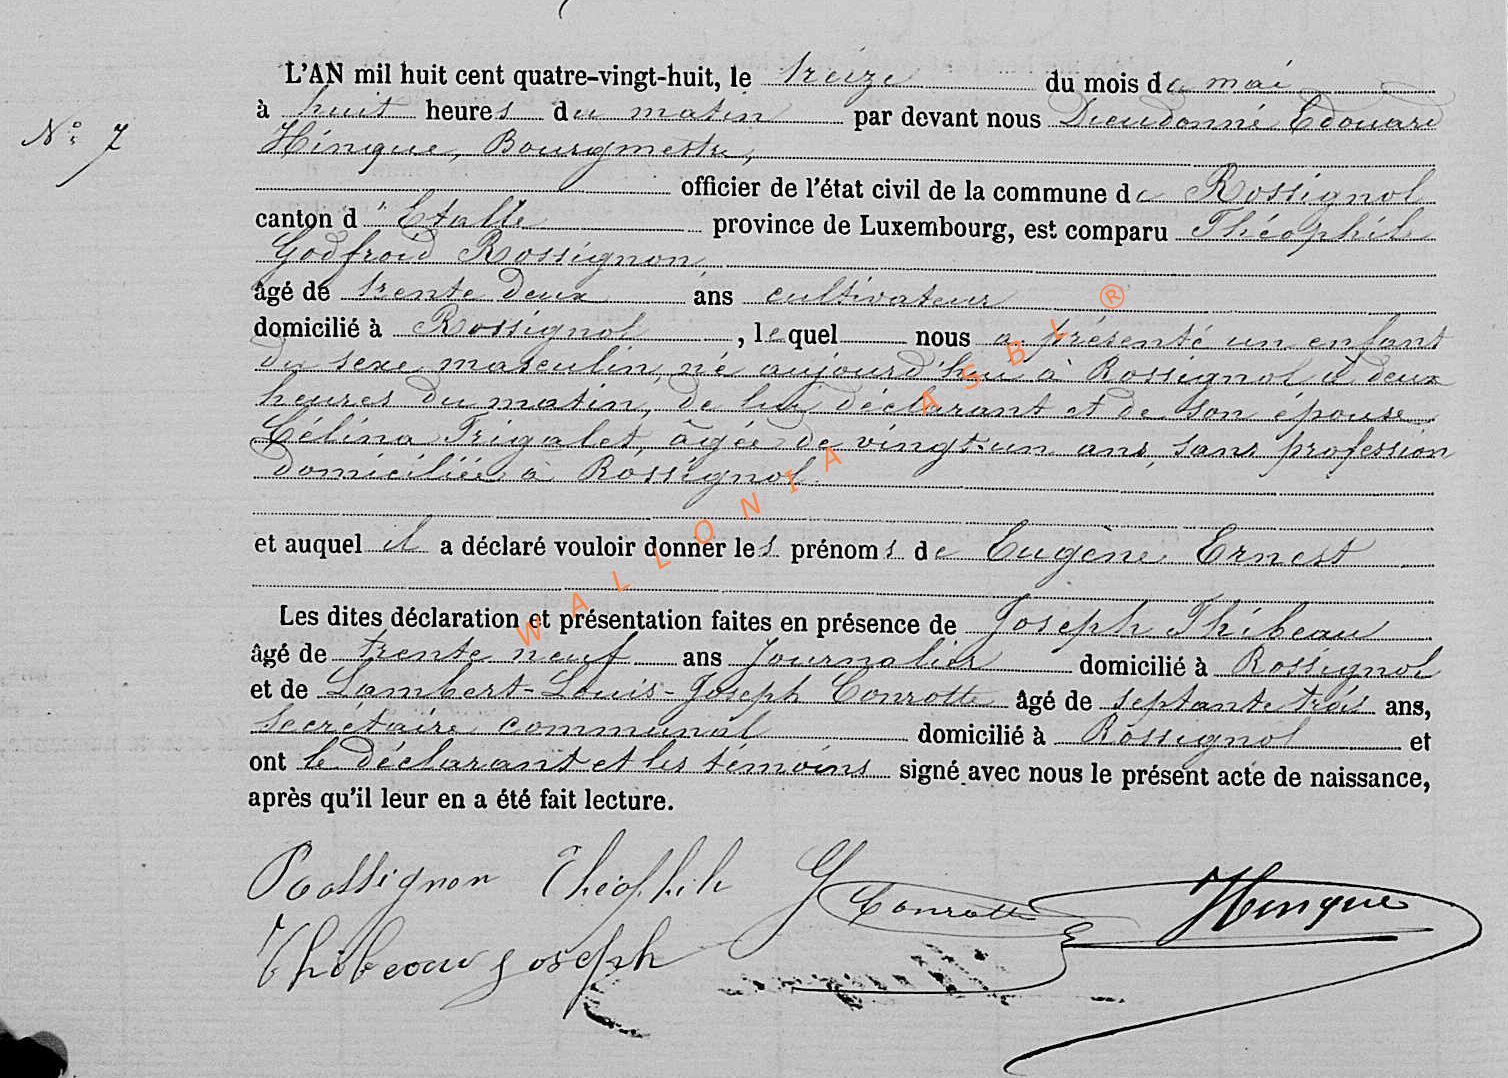 L'AN mil huit cent quatre-vingt-huit, le treize du mois de mai
à huit heures du matin par devant nous Dieudonné Edouard
N° 7
Hinque, Bourgmestre,
officier de l'état civil de la commune de Rossignol
canton d'Etalle province de Luxembourg, est comparu Théophile
Godfroid Rossignon,
âgé de trente deux ans cultivateur
domicilié à Rossignol, lequel nous a présenté un enfant
du sexe masculin, né aujourd'hui à Rossignol à deux
heures du matin, de lui déclarant et de son épouse
Célina Trigalet, âgée de vingt un ans, sans profession
domiciliée à Rossignol.
et auquel il a déclaré vouloir donner les prénoms de Eugène Ernest
Les dites déclaration et présentation faites en présence de Joseph Thibeau
âgé de trente neuf ans journalier domicilié à Rossignol
et de Lambert-Louis-Joseph Conrotte âgé de septante trois ans,
secrétaire communal domicilié à Rossignol et
ont le déclarant et les témoins signé avec nous le présent acte de naissance,
après qu'il leur en a été fait lecture.
Rossignon Théophile Conrotte Hinque
Thibeau Joseph
WALLONIA ASBL ®